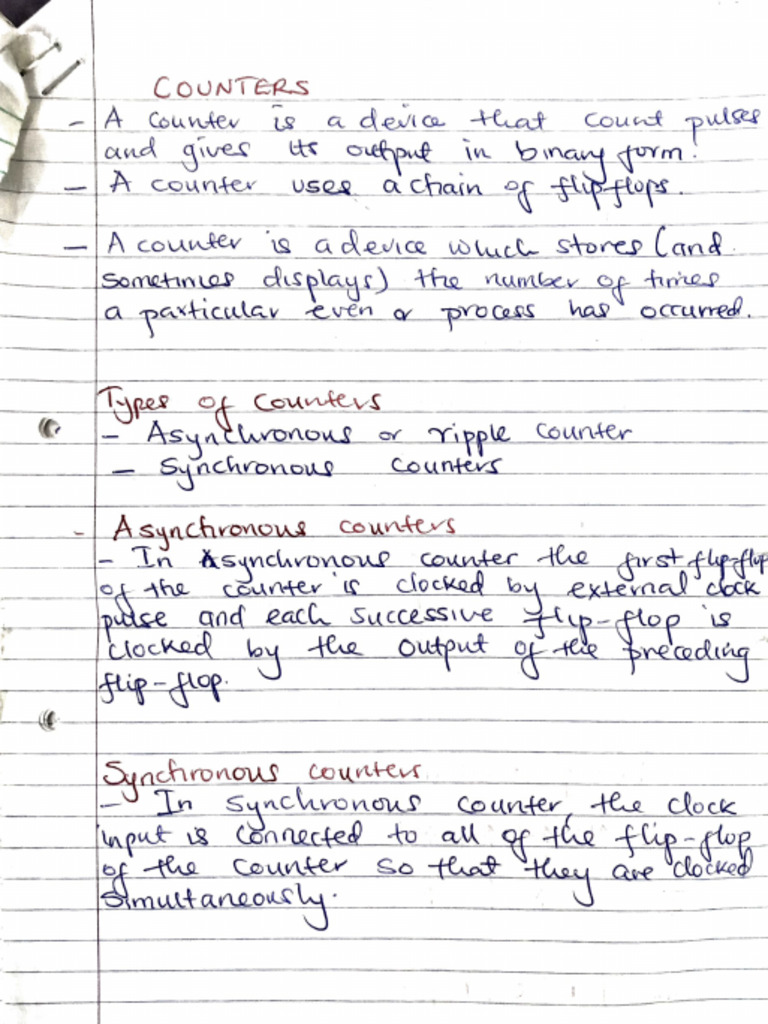 COUNTERS
- A counter is a device that count pulses
and gives its output in binary form.
- A counter uses a chain of flip-flops.
- A counter is a device which stores (and
sometimes displays) the number of times
a particular even or process has occurred.
Types of counters
- Asynchronous or ripple counter
- Synchronous counters
- Asynchronous counters
- In Asynchronous counter the first flip-flop
of the counter is clocked by external clock
pulse and each successive flip-flop is
clocked by the output of the preceding
flip-flop.
Synchronous counters
- In synchronous counter, the clock
input is connected to all of the flip-flop
of the counter so that they are clocked
simultaneously.